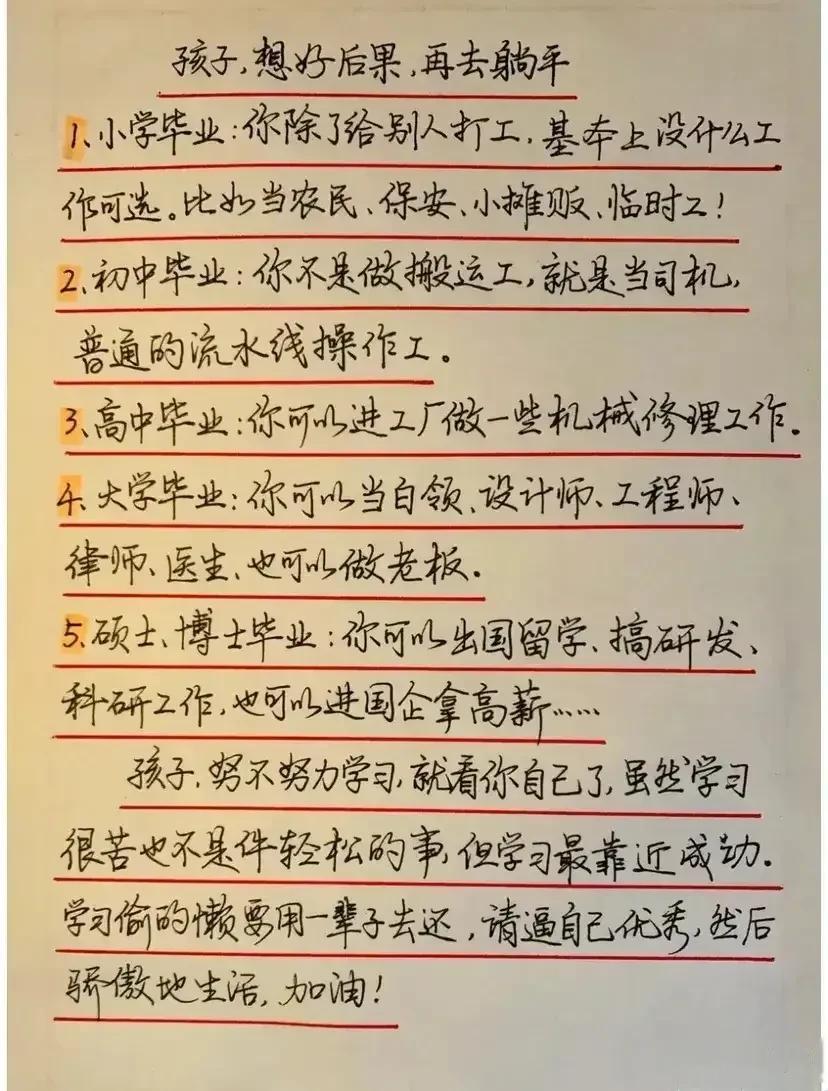 孩子,想好后果,再去躺平
1、小学毕业:你除了给别人打工,基本上没什么工
作可选。比如当农民、保安、小摊贩、临时工!
2、初中毕业:你不是做搬运工,就是当司机,
普通的流水线操作工。
3、高中毕业:你可以进工厂做一些机械修理工作。
4、大学毕业:你可以当白领、设计师、工程师、
律师、医生、也可以做老板。
5、硕士、博士毕业:你可以出国留学、搞研发、
科研工作,也可以进国企拿高薪……
孩子,努不努力学习,就看你自己了,虽然学习
很苦也不是件轻松的事,但学习最靠近成功。
学习偷的懒要用一辈子去还,请逼自己优秀,然后
骄傲地生活,加油!